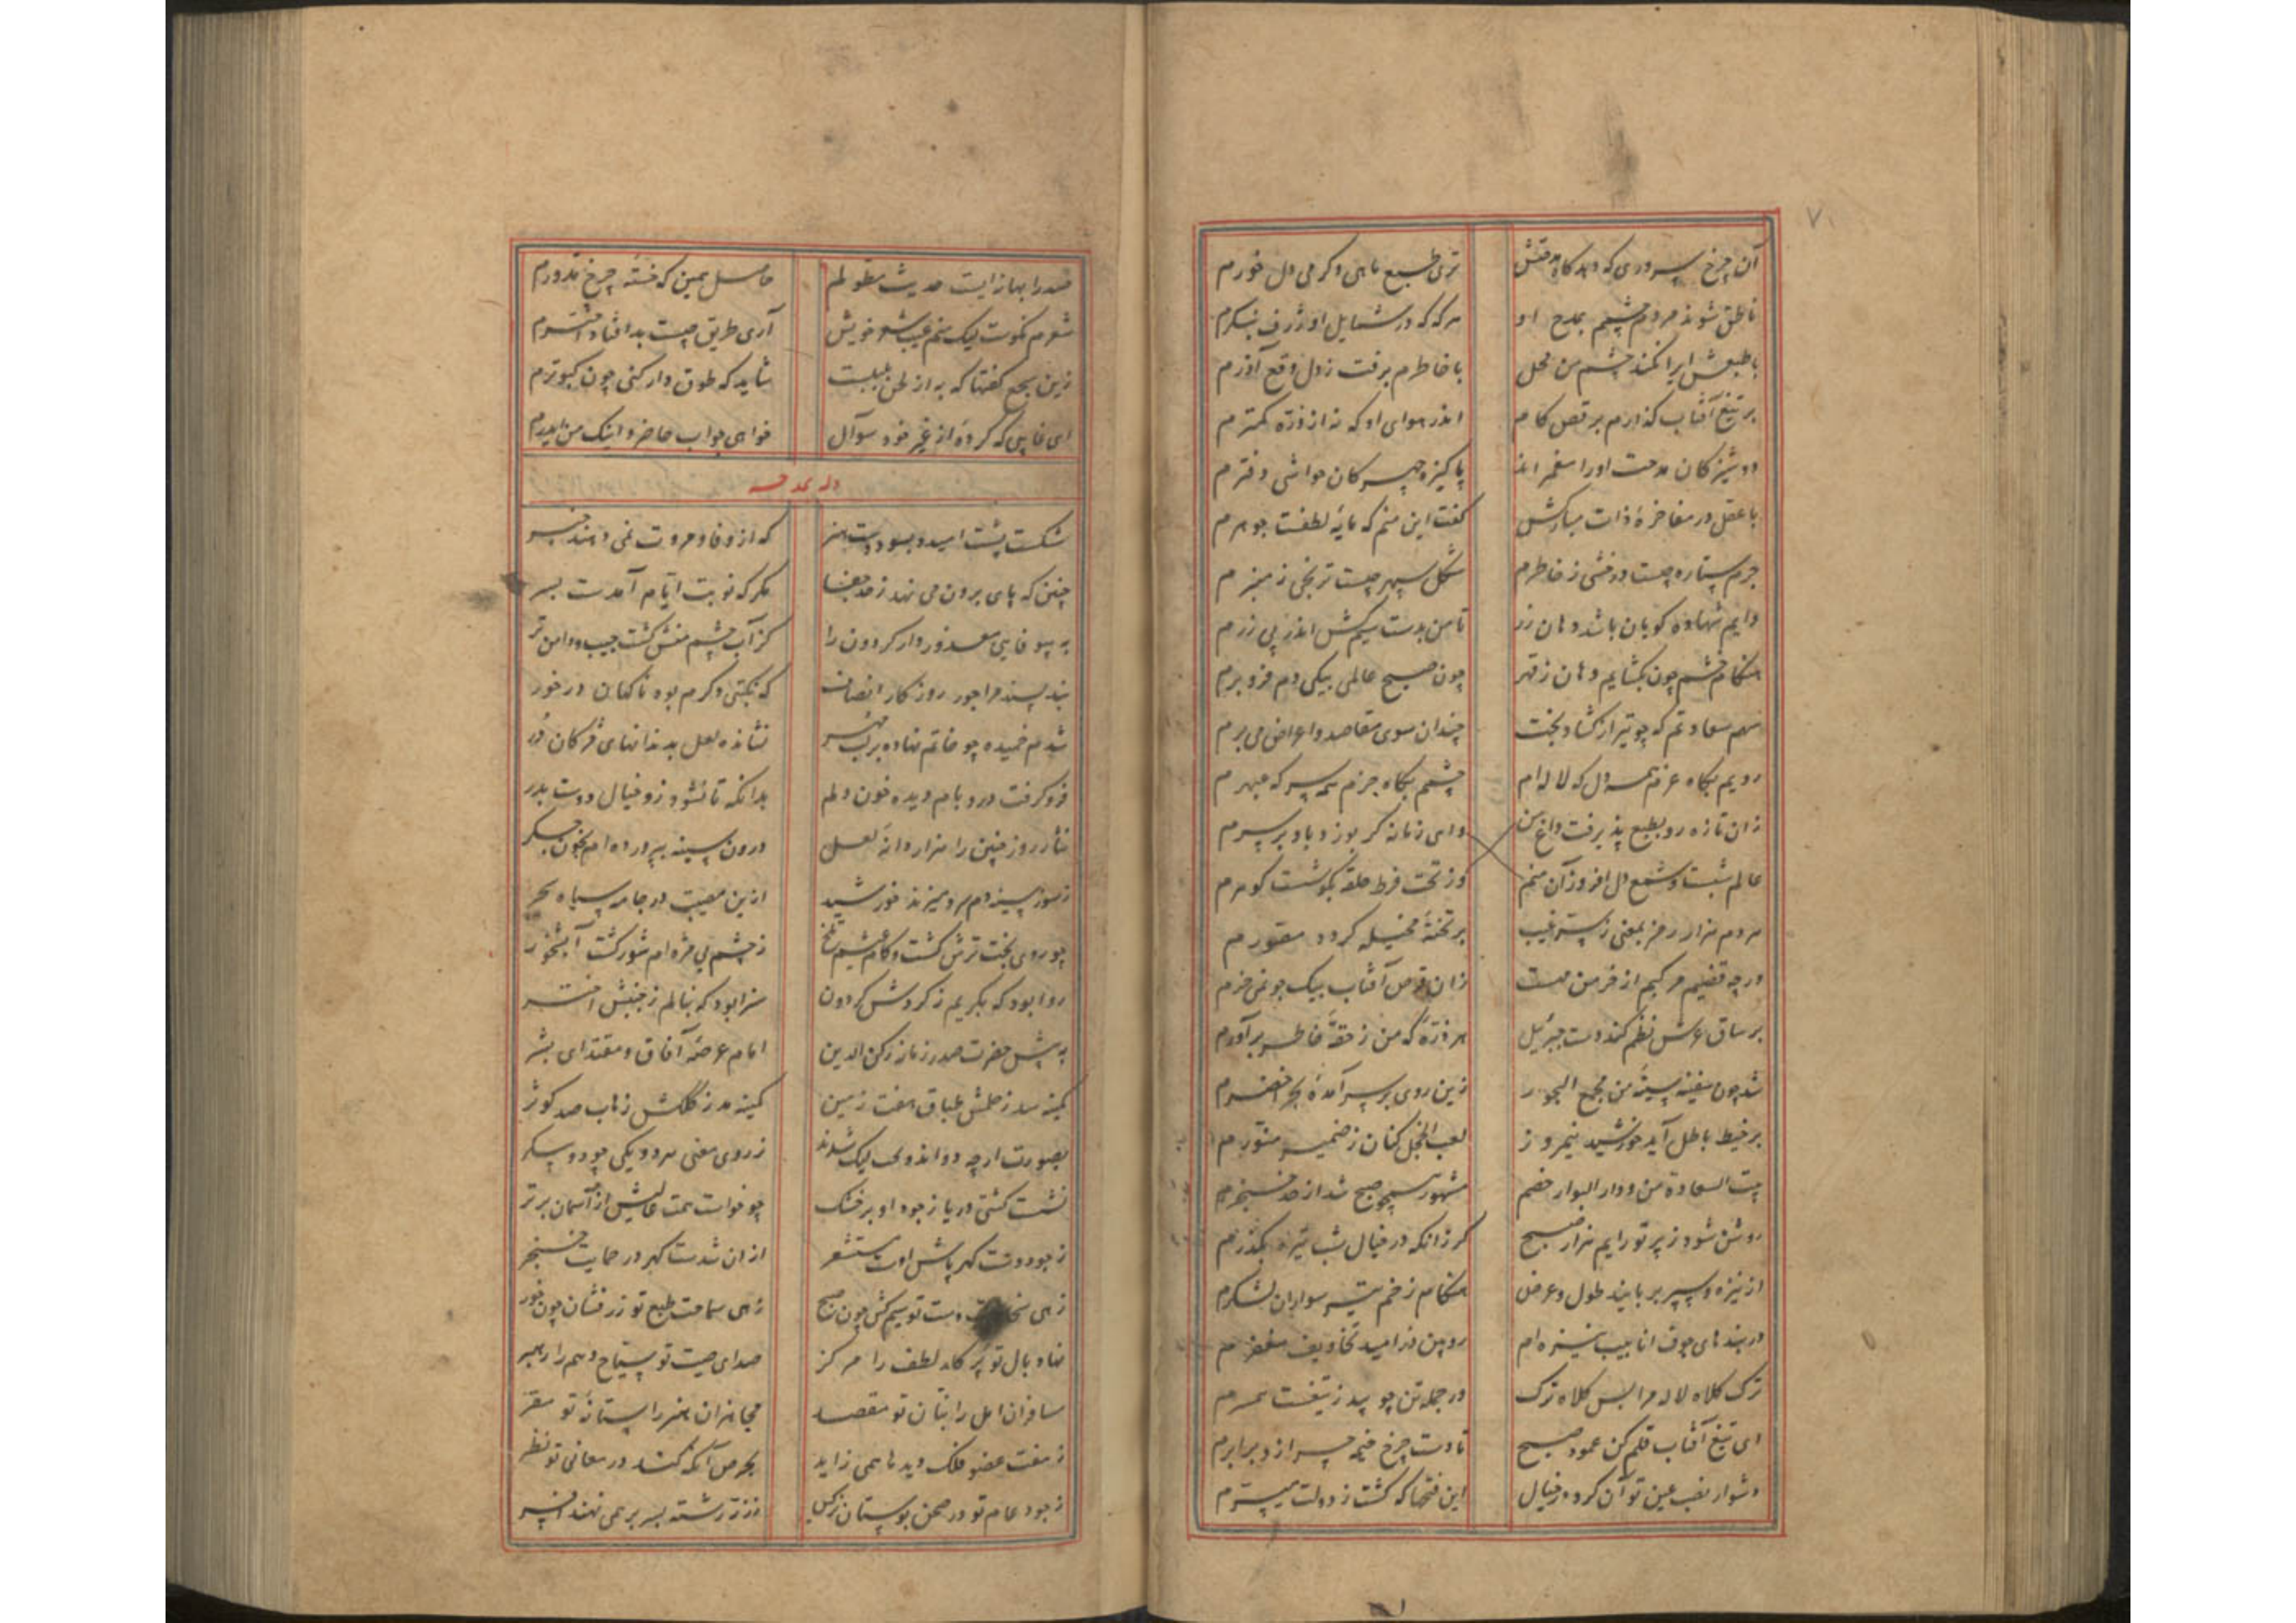 ۷۱
آن چرخ سروری که دهد گاه مدقتش ترّی طبع ماهی و گرمی دل خورم
ناطق شوند مردم چشمم بمدح او هر که که در شمایل او ژرف بنگرم
با طبعش ابر را نکند چشم من محل با خاطرم برفت ز دل وقع آذرم
بر تیغ آفتاب گذارم برقص کام اندر هوای او که نه از ذره کمترم
دوشیزگان مدحت او را سغر اند پاکیزه چهرگان حواشی دفترم
با عقل در مفاخره ذات مبارکش گفت این منم که مایه لطفست جوهرم
جرم ستاره چیست درخشی ز خاطرم شکل سپهر چیست ترنجی ز منبرم
دایم شهاده گویان باشد دهان زر تا من بدست سیم کش اندر پی زرم
هنگام خشم چون بگشایم دهان ز قهر چون صبح عالمی بیکی دم فرو برم
سهم سعادتم که چو تیر از گشاد بخت چندان سوی مقاصد و اعراض می برم
رویم بگاه عزم سه دل که لاله ام چشمم بگاه جزم همه سر که عبهرم
زان تازه رو بطبع پذیرفت داغ من وای زمانه گر بوزد باد بر سرم
عالم شبست و شمع دل افروز آن منم وز تحت فرط حلقه بگوشست گوهرم
هر دم هزار رمز بمعنی ز ستر غیب بر تخته مخیله گردد مقورم
در چه قضیم مرکبم از خرمن مهست زان قرص آفتاب بیک جو نمی خرم
بر ساق عرش نظم کند دست جبرئیل هر ذره که من ز حقه خاطر برآورم
شد چون سفینه سینه من مجمع البحور زین روی بر سر آمده بحر اخضرم
بر خیط باطل آید خورشید نیمروز لعب الخجل کنان ز ضمیر منورم
بیت السعادة من و دار البوار خصم مشهور همچو صبح شد از حد خنجرم
روشن شود ز پرتو رایم هزار صبح گر زانکه در خیال شب تیره بگذرم
از نیزه و سپر بربایند طول و عرض هنگام زخم تیر سواران لشکرم
در بندهای جوف انابیب نیزه ام
ترک کلاه لاله مرا بس کلاه ترک در جمله تن چو بید ز تیغست سرم
ای تیغ آفتاب قلم کن عمود صبح تا دست چرخ خیمه چرا زد برابرم
دشوار نصب عین تو آن کرد در خیال این فتحها که گشت ز دولت میسرم
صدرا بهانه ایست حدیث مطولم حاصل همین که خسته چرخ مدورم
شعرم نکوست لیک منم عیب شعر خویش آری طریق چیست بد افتاد اخترم
زین سجع گفتها که به از لحن بلبلست شاید که طوق دار کنی چون کبوترم
ای غایبی که کرده از غیر خود سوآل خواهی جواب حاضر و اینک من ایدرم
وله یمدحه
شکست پشت امید و بسود دست هنر که از وفا و مروت نمی دهند خبر
چنین که پای برون می نهد ز حد جفا مگر که نوبت ایام آمدست بسر
به بیوفایی معذور دار گردون را کز آب چشم منش گشت جیب و دامن تر
بند پسند مرا جور روزگار انصاف که نیکی و کرم بود ناگهان در خور
شدم خمیده چو خاتم نهاده بر لب مهر نشانده لعل بدندانهای مژگان در
فرو گرفت در و بام دیده خون دلم بدانکه تا نشود زو خیال دوست بدر
نثار روز چنین را هزار دانه لعل درون سینه بپرورده ام بخون جگر
ز سوز سینه دم سرد میزند خورشید ازین مصیبت در جامه سیاه سحر
چو روی بخت ترش گشت و کام عیشم تلخ ز چشم بی مزه ام شور گشت آبشخور
روا بود که بگریم ز گردش گردون سزا بود که بنالم ز جنبش اختر
به پیش حضرت صدر زمانه رکن الدین امام عرصه آفاق و مقتدای بشر
کمینه سد ز حلمش طباق هفت زمین کمینه مد ز کلکش زهاب صد کوثر
بصورت ارچه دو اند ولی لیک شدند ز روی معنی هر دو یکی چو دو پیکر
نشست کشتی دریا ز جود او بر خشک چو خواست همت عالیش از آسمان برتر
ز جود دست گهر پاش اوست مستشعر از آن شدست گهر در حمایت خنجر
زهی سخاوت دست تو سیم کش چون صبح زهی سماحت طبع تو زر فشان چون خور
نهاد بال تو پرگار لطف را مرکز صدای صیت تو سیاح وهم را رهبر
مسافران امل را بنان تو مقصد مجاهزان هنر را ستانه تو مقر
ز هفت عضو فلک دیدها همی زاید بحرص آنکه کند در معانی تو نظر
ز جود عام تو در صحن بوستان نرگس ز زر رشته بسر بر همی نهند افسر